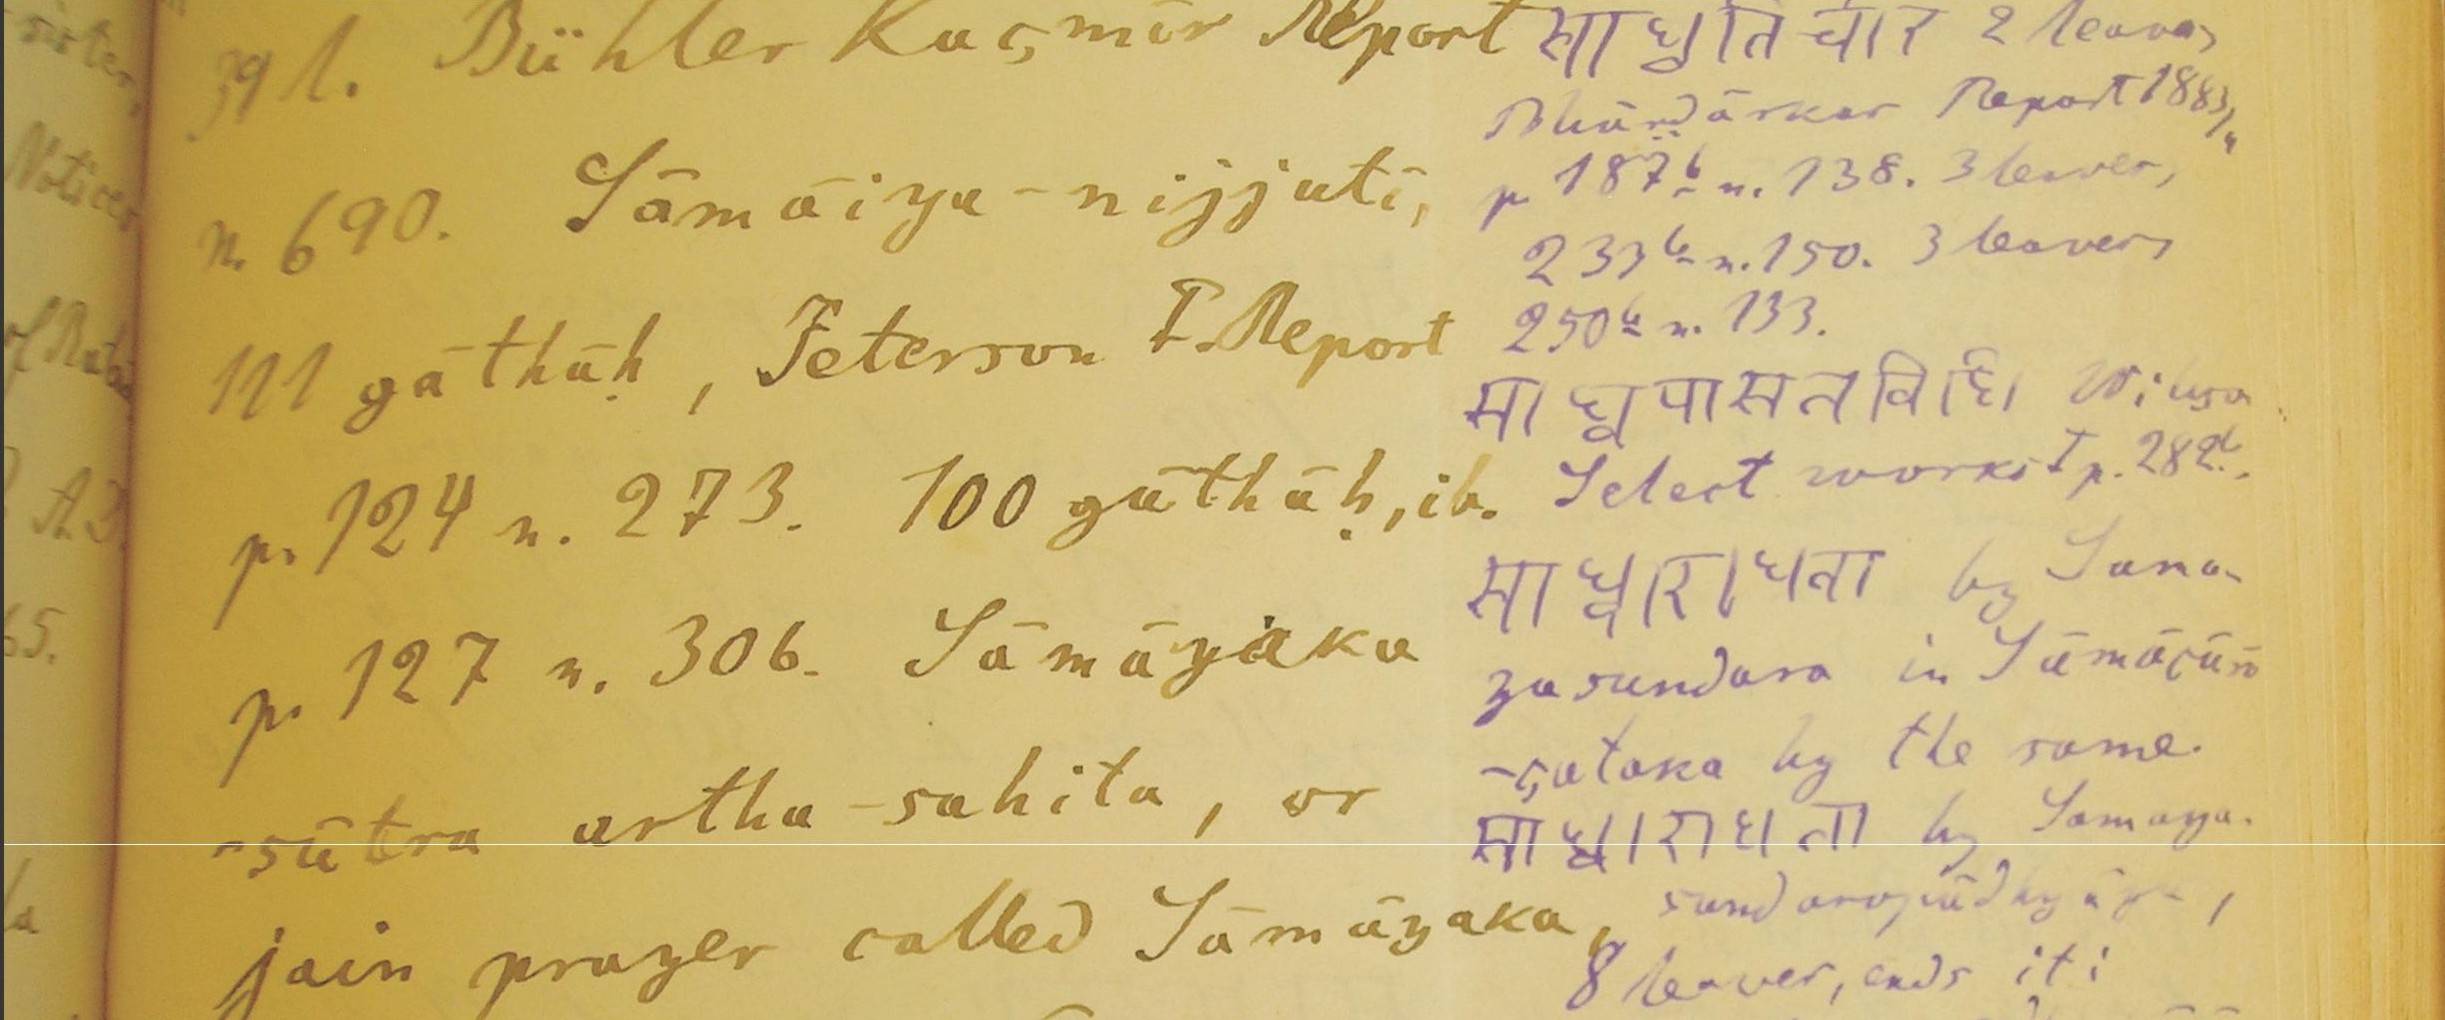 39 l. Bühler Kaçmīr Report
n. 690. Sāmāiya-nijjuti,
111 gāthāḥ, Peterson I. Report
p. 124 n. 273. 100 gāthāḥ, ib.
p. 127 n. 306. Sāmāyaka
-sūtra artha-sahita, or
jain prayer called Sāmāyaka,
साधुतिचार 2 leaves
Bhāṇḍārkar Report 1883/4
p. 187b n. 138. 3 leaves,
233b n. 150. 3 leaves
250b n. 133.
साधूपासनविधि Wilson
Select works I p. 282.
साध्वाराधना by Sama-
yasundara in Sāmācārī
-çataka by the same.
साध्वाराधना by Samaya-
sundaropādhyāya,
8 leaves, ends iti
sister,
Notices
A.D.
65.